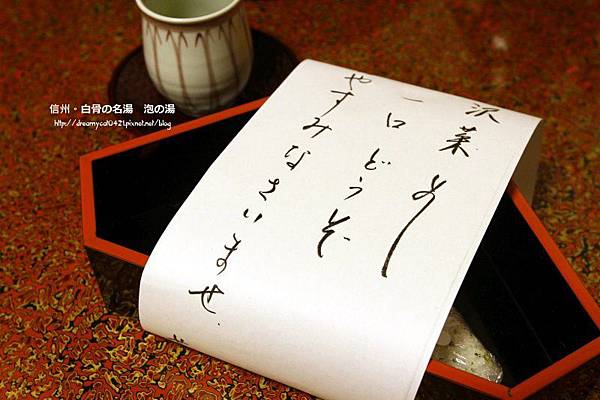 沢菜めし
一口どうぞ
やすみなさいませ.
信州・白骨の名湯　泡の湯
http://dreamycat0421.pixnet.net/blog